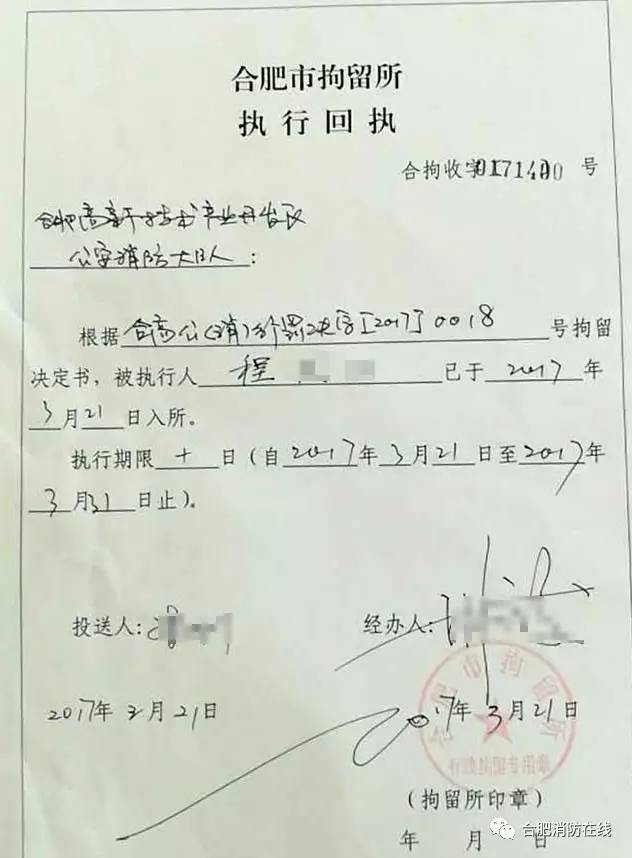 合肥市拘留所
执行回执
合拘收字0171400号
合肥高新技术产业开发区
公安消防大队：
根据合高公(消)行罚决字[2017]0018号拘留
决定书，被执行人程 已于2017年
3月21日入所。
执行期限十日（自2017年3月21日至2017年
3月31日止）。
投送人：
经办人：
2017年3月21日
2017年3月21日
合肥市拘留所
行政拘留专用章
（拘留所印章）
年 月 日
合肥消防在线